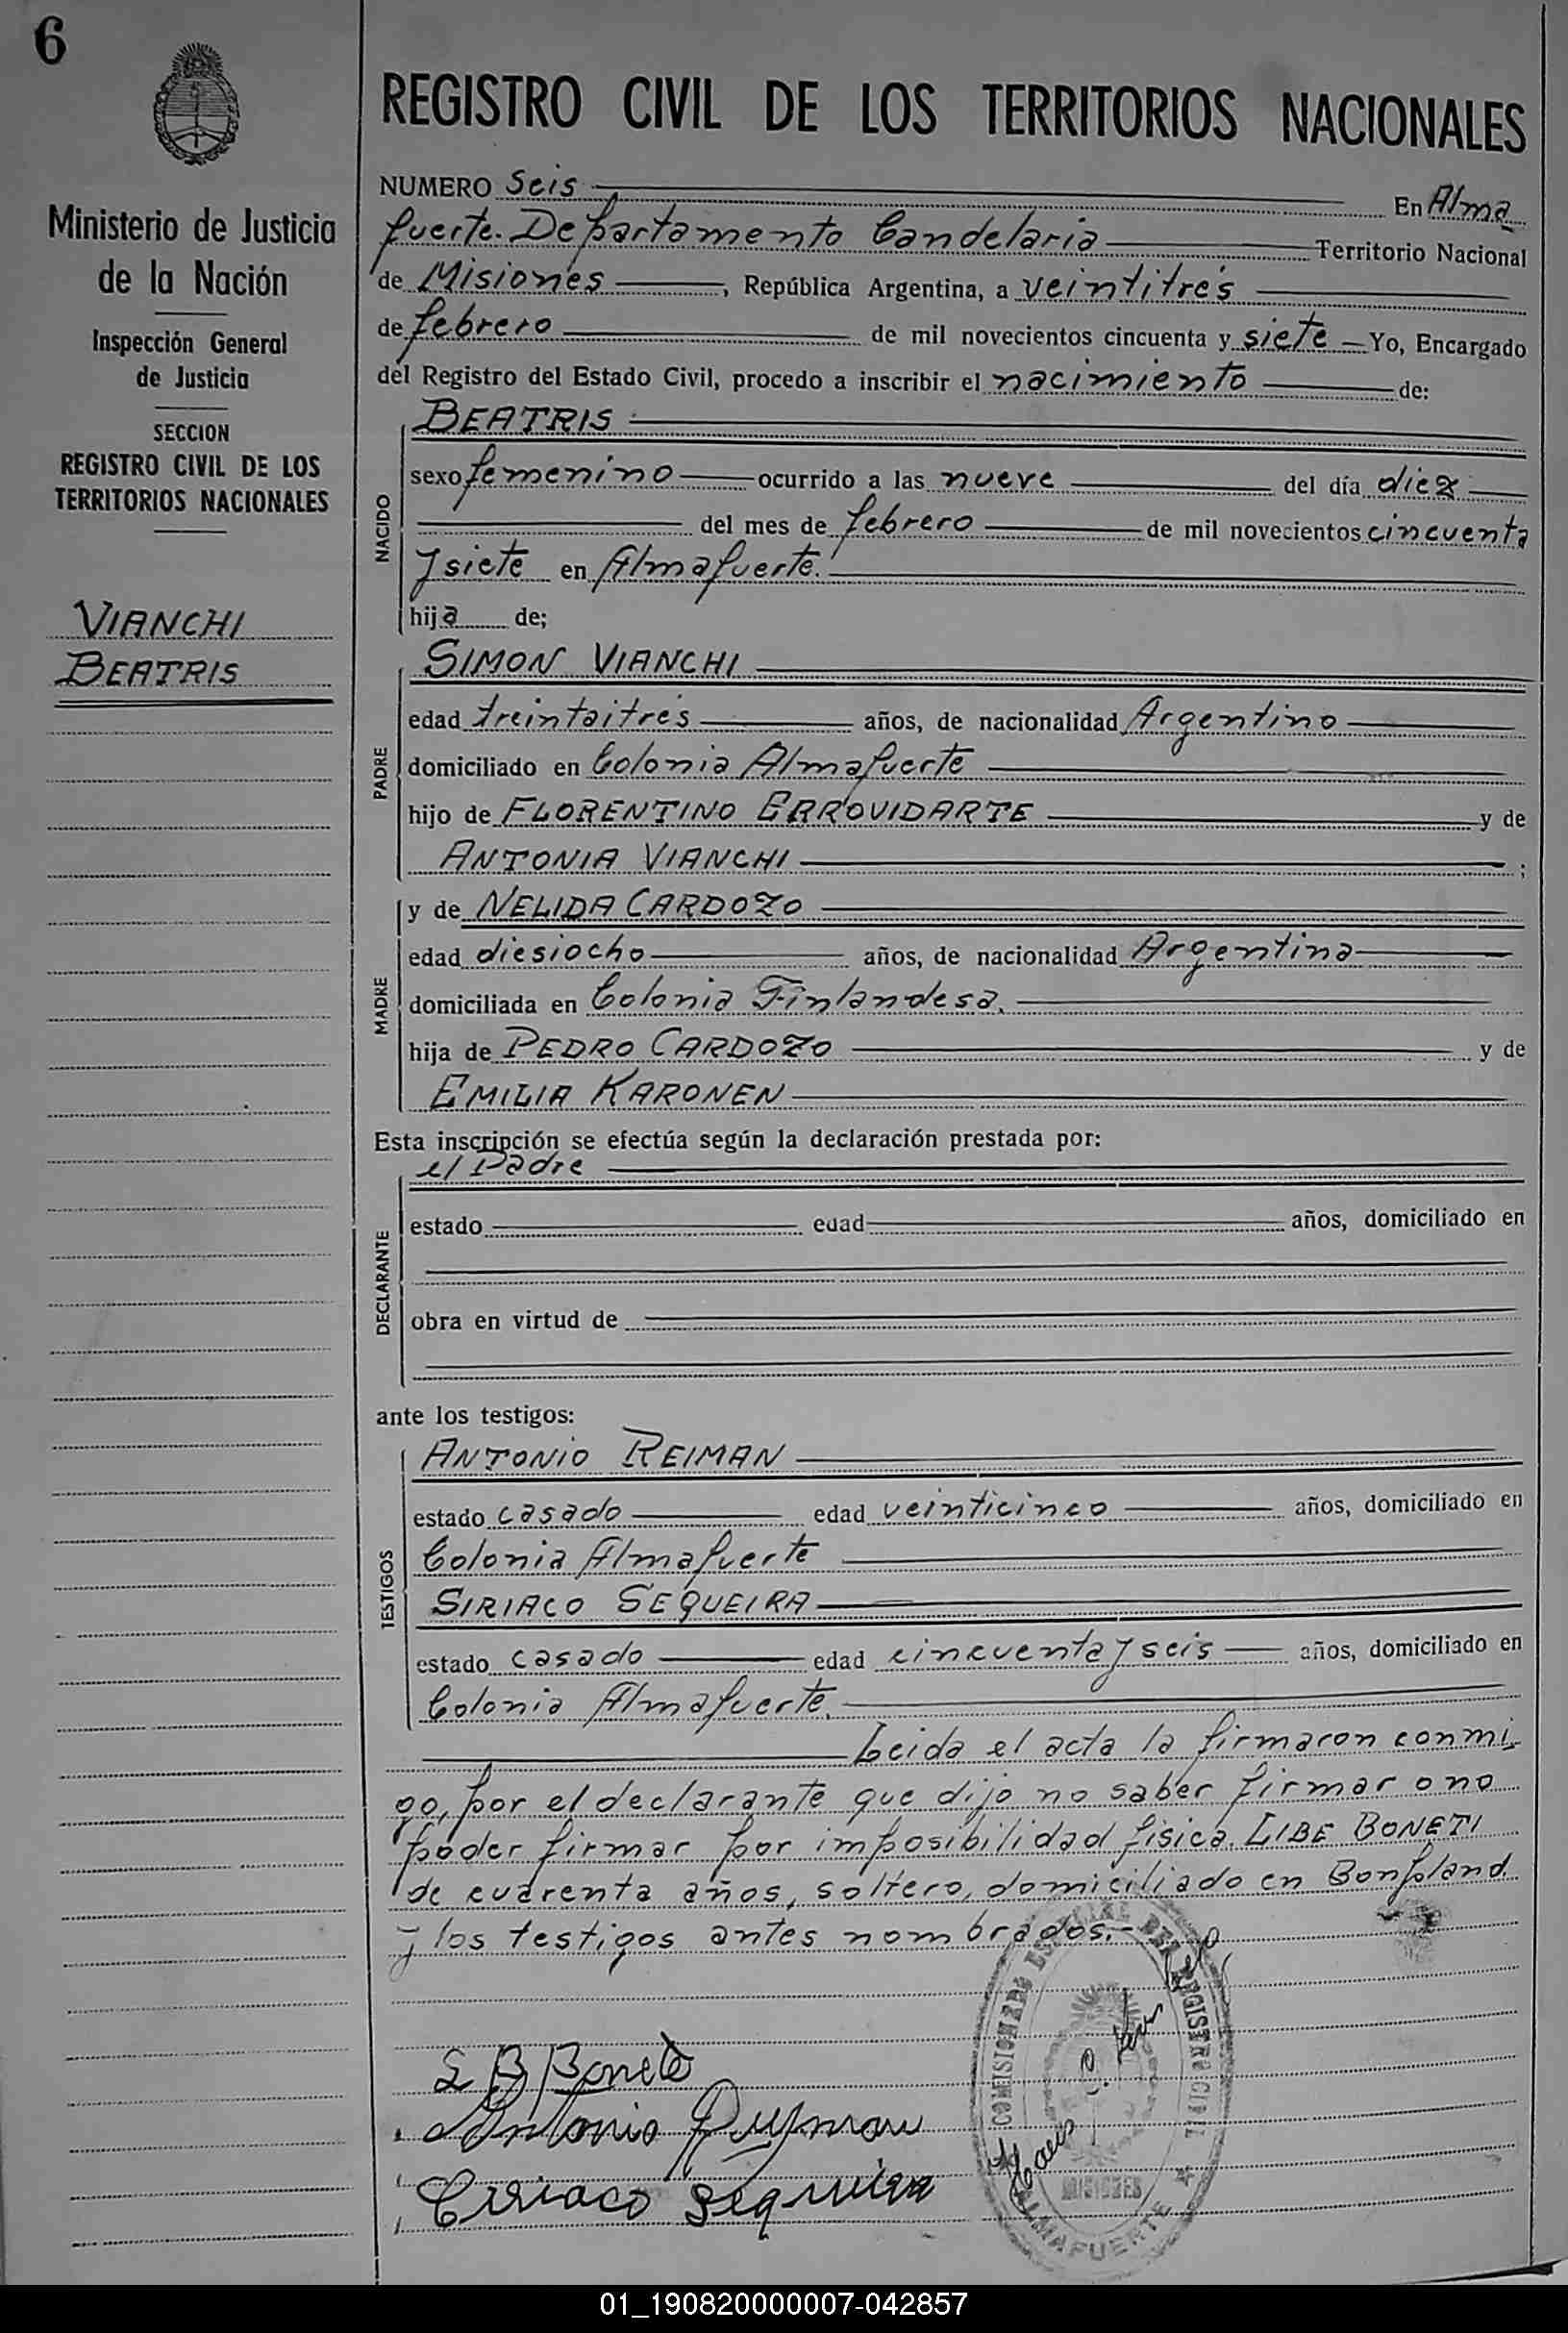 6
Ministerio de Justicia
de la Nación
Inspección General
de Justicia
SECCION
REGISTRO CIVIL DE LOS
TERRITORIOS NACIONALES
VIANCHI
BEATRIS
REGISTRO CIVIL DE LOS TERRITORIOS NACIONALES
NUMERO Seis En Alma
fuerte. Departamento Candelaria Territorio Nacional
de Misiones, República Argentina, a veintitrés
de febrero de mil novecientos cincuenta y siete Yo, Encargado
del Registro del Estado Civil, procedo a inscribir el nacimiento de:
NACIDO
BEATRIS
sexo femenino ocurrido a las nueve del día diez
del mes de febrero de mil novecientos cincuenta
y siete en Almafuerte.
hija de;
PADRE
SIMON VIANCHI
edad treintaitrés años, de nacionalidad Argentino
domiciliado en Colonia Almafuerte
hijo de FLORENTINO ERROVIDARTE y de
ANTONIA VIANCHI ;
MADRE
y de NELIDA CARDOZO
edad diesiocho años, de nacionalidad Argentina
domiciliada en Colonia Finlandesa.
hija de PEDRO CARDOZO y de
EMILIA KARONEN
Esta inscripción se efectúa según la declaración prestada por:
DECLARANTE
el Padre
estado edad años, domiciliado en
obra en virtud de
ante los testigos:
TESTIGOS
ANTONIO REIMAN
estado casado edad veinticinco años, domiciliado en
Colonia Almafuerte
SIRIACO SEQUEIRA
estado casado edad cincuenta y seis años, domiciliado en
Colonia Almafuerte.
Leida el acta la firmaron conmi
go, por el declarante que dijo no saber firmar o no
poder firmar por imposibilidad física. LIBE BONETI
de cuarenta años, soltero, domiciliado en Bonpland.
y los testigos antes nombrados.-
L B Boneti
Antonio Reyman
Ciriaco Sequeira
REGISTRO CIVIL
MISIONES
ALMAFUERTE
01_190820000007-042857